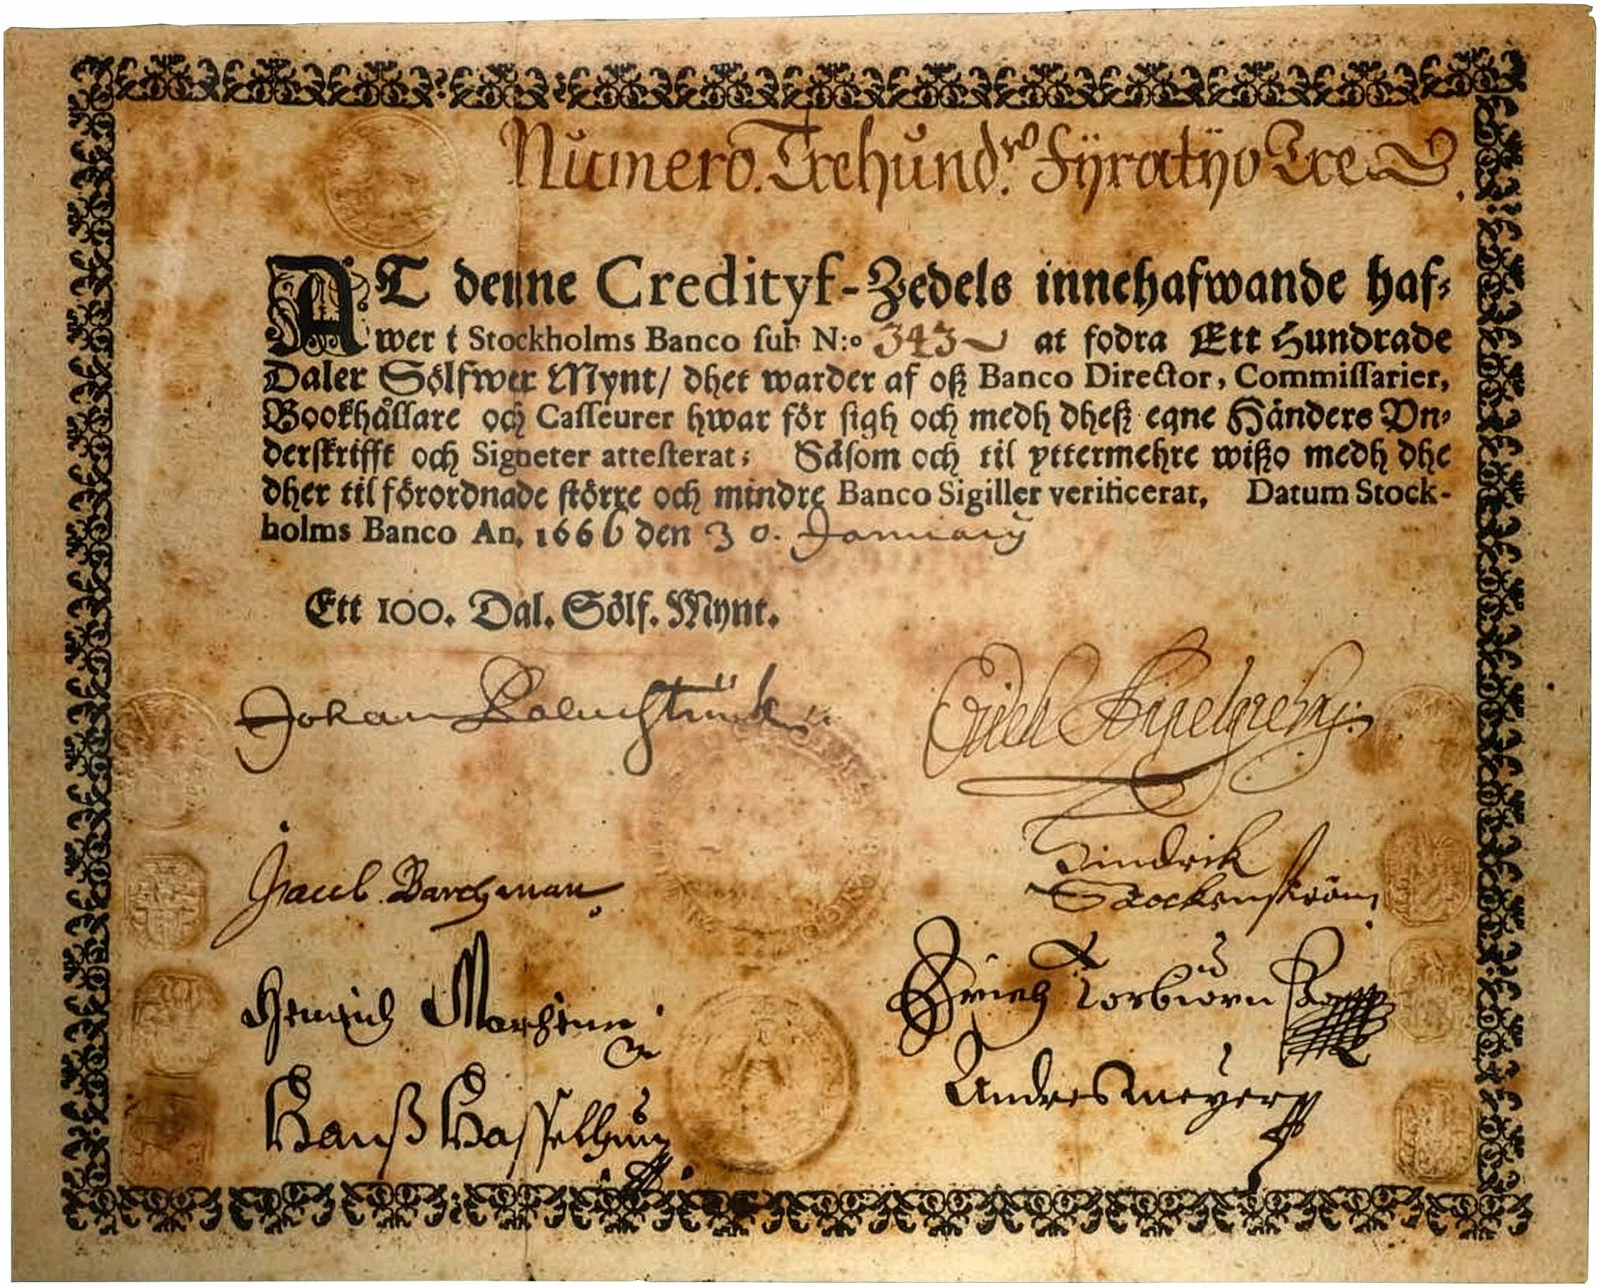 Numero. Trehund.ro Fÿratÿo Tre
AT denne Credityf-Zedels innehafwande haf-
wer i Stockholms Banco sub N:o 343 at fodra Ett Hundrade
Daler Sölfwer Mynt/ dhet warder af oß Banco Director, Commissarier,
Bookhållare och Casseurer hwar för sigh och medh dheß egne Händers Vn-
derskrifft och Signeter attesterat; Såsom och til yttermehre wißo medh dhe
dher til förordnade större och mindre Banco Sigiller verificerat, Datum Stock-
holms Banco An. 1666 den 30. January
Ett 100. Dal. Sölf. Mynt.
Johan
Jacob Barchman
Hindrik
Stockenström
Henrich
Erich Torbiörn
Hanß
Andres Meyer